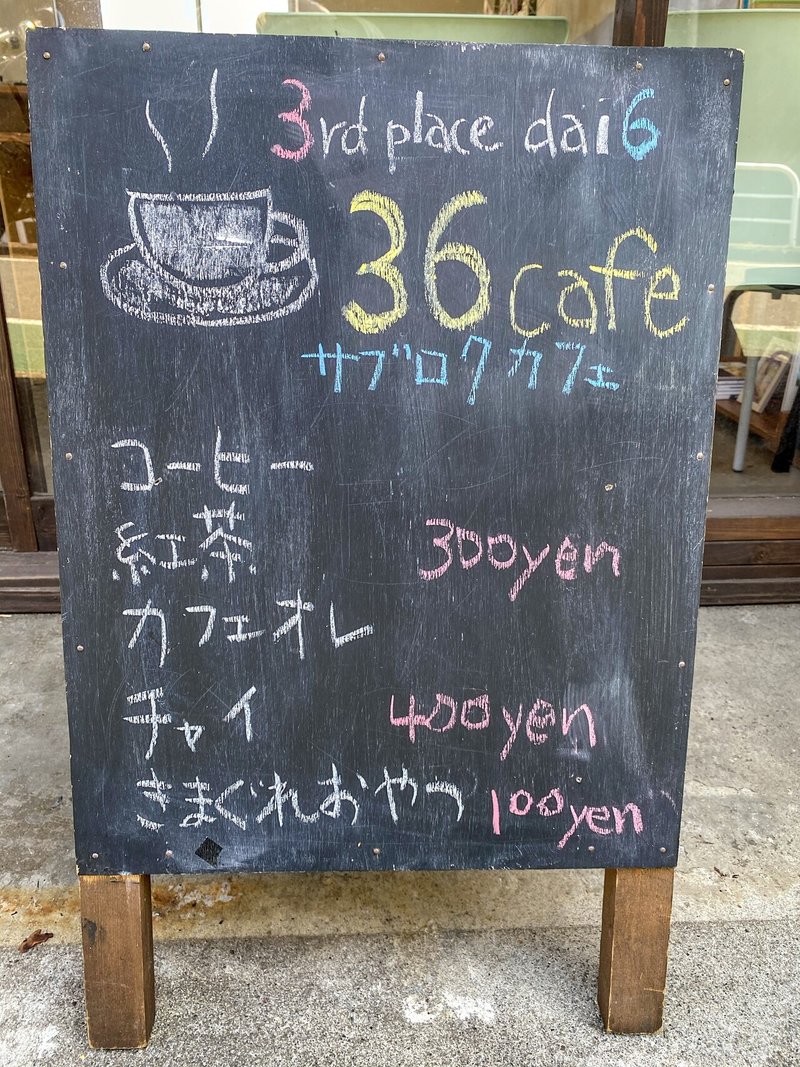 3rd place dai6
36 cafe
サブロクカフェ
コーヒー
紅茶 300yen
カフェオレ
チャイ 400yen
きまぐれおやつ 100yen